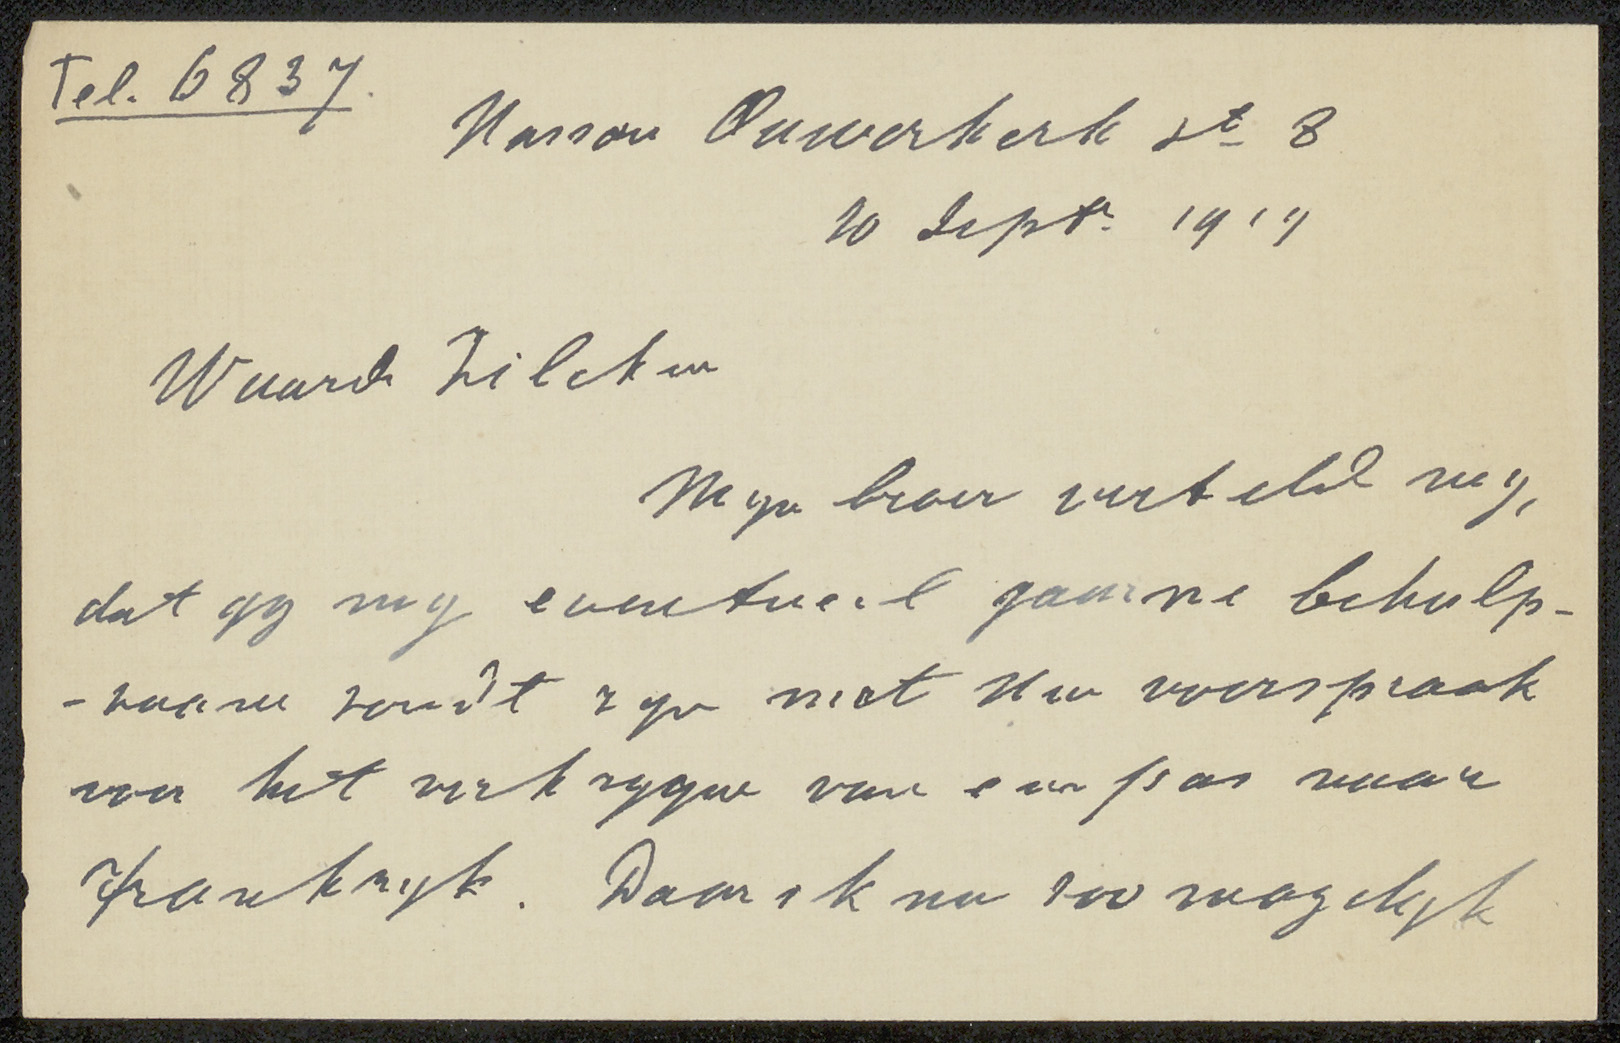 Tel. 6837.
Nassau Ouwerkerk st 8
10 Septr. 1917
Waarde Zilcken
Myn broer verteld my,
dat gy my eventueel gaarne behulp-
-zaam zoudt zyn met Uw voorspraak
voor het verkrygen van een pas naar
Frankryk. Daar ik nu zoo mogelyk